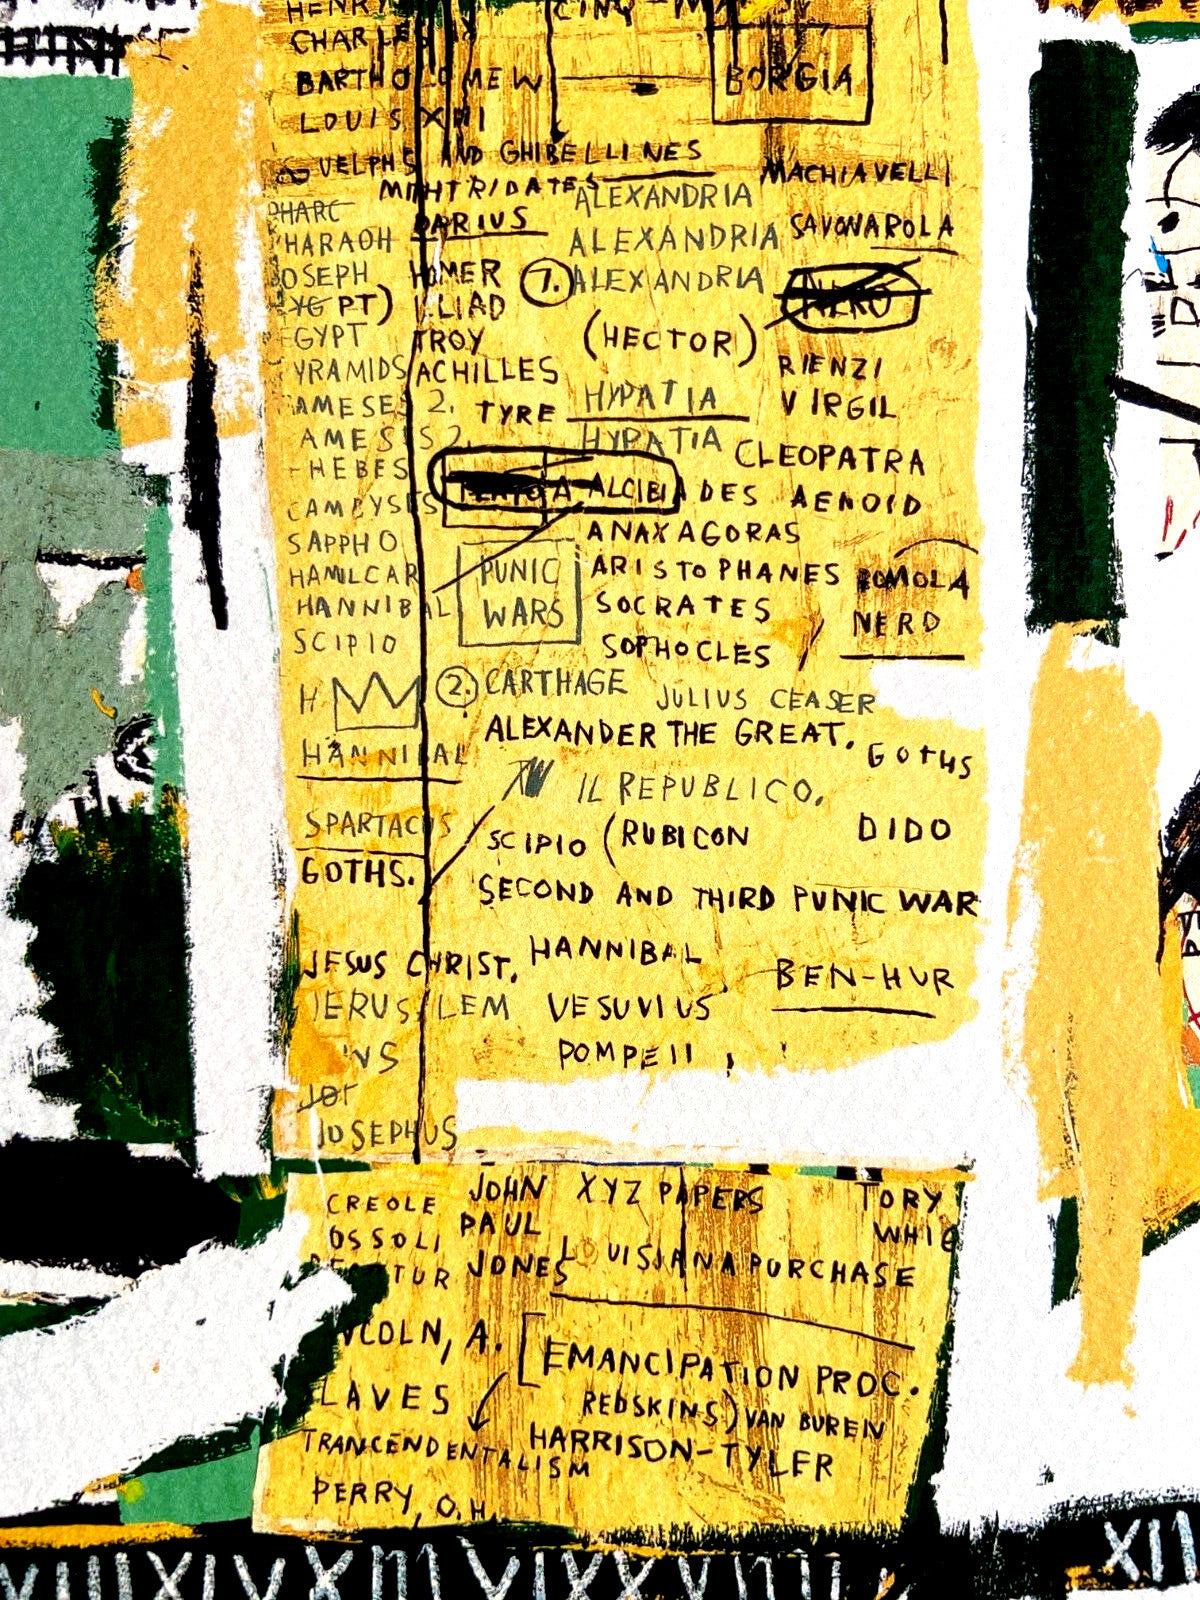 HENRY CINQ-MA
CHARLES
BARTHOLOMEW BORGIA
LOUIS XIII
GUELPHS AND GHIBELLINES MACHIAVELLI
MIHTRIDATES ALEXANDRIA
PHARC DARIUS ALEXANDRIA SAVONAROLA
HARAOH
OSEPH HOMER 1. ALEXANDRIA NERO
YG PT) ILIAD
EGYPT TROY (HECTOR)
YRAMIDS ACHILLES RIENZI
AMESES 2. TYRE HYPATIA VIRGIL
AMESIS 2. HYPATIA CLEOPATRA
HEBES
CAMBYSES ALCIBIADES AENOID
SAPPHO ANAXAGORAS
HAMILCAR PUNIC ARISTOPHANES ROMOLA
HANNIBAL WARS SOCRATES NERO
SCIPIO SOPHOCLES
H 2. CARTHAGE JULIUS CEASER
ALEXANDER THE GREAT.
HANNIBAL GOTHS
IL REPUBLICO.
SPARTACUS SCIPIO (RUBICON DIDO
GOTHS.
SECOND AND THIRD PUNIC WAR
JESUS CHRIST. HANNIBAL BEN-HUR
JERUSILEM VESUVIUS
WS POMPEII
JOF
JOSEPHUS
CREOLE JOHN XYZ PAPERS TORY
OSSOLI PAUL WHIG
TUR JONES LOUISIANA PURCHASE
NCOLN, A. [EMANCIPATION PROC.
LAVES REDSKINS) VAN BUREN
TRANCENDENTALISM HARRISON-TYLER
PERRY, O.H.
VIIIXIVXIIIVIXXXVIIII XII